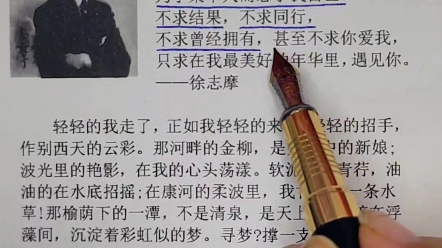 不求结果，不求同行，
不求曾经拥有，甚至不求你爱我，
只求在我最美好年华里，遇见你。
——徐志摩
轻轻的我走了，正如我轻轻的来轻的招手，
作别西天的云彩。那河畔的金柳，是中的新娘；
波光里的艳影，在我的心头荡漾。软青荇，油
油的在水底招摇；在康河的柔波里，我一条水
草！那榆荫下的一潭，不是清泉，是天上在浮
藻间，沉淀着彩虹似的梦。寻梦？撑一支